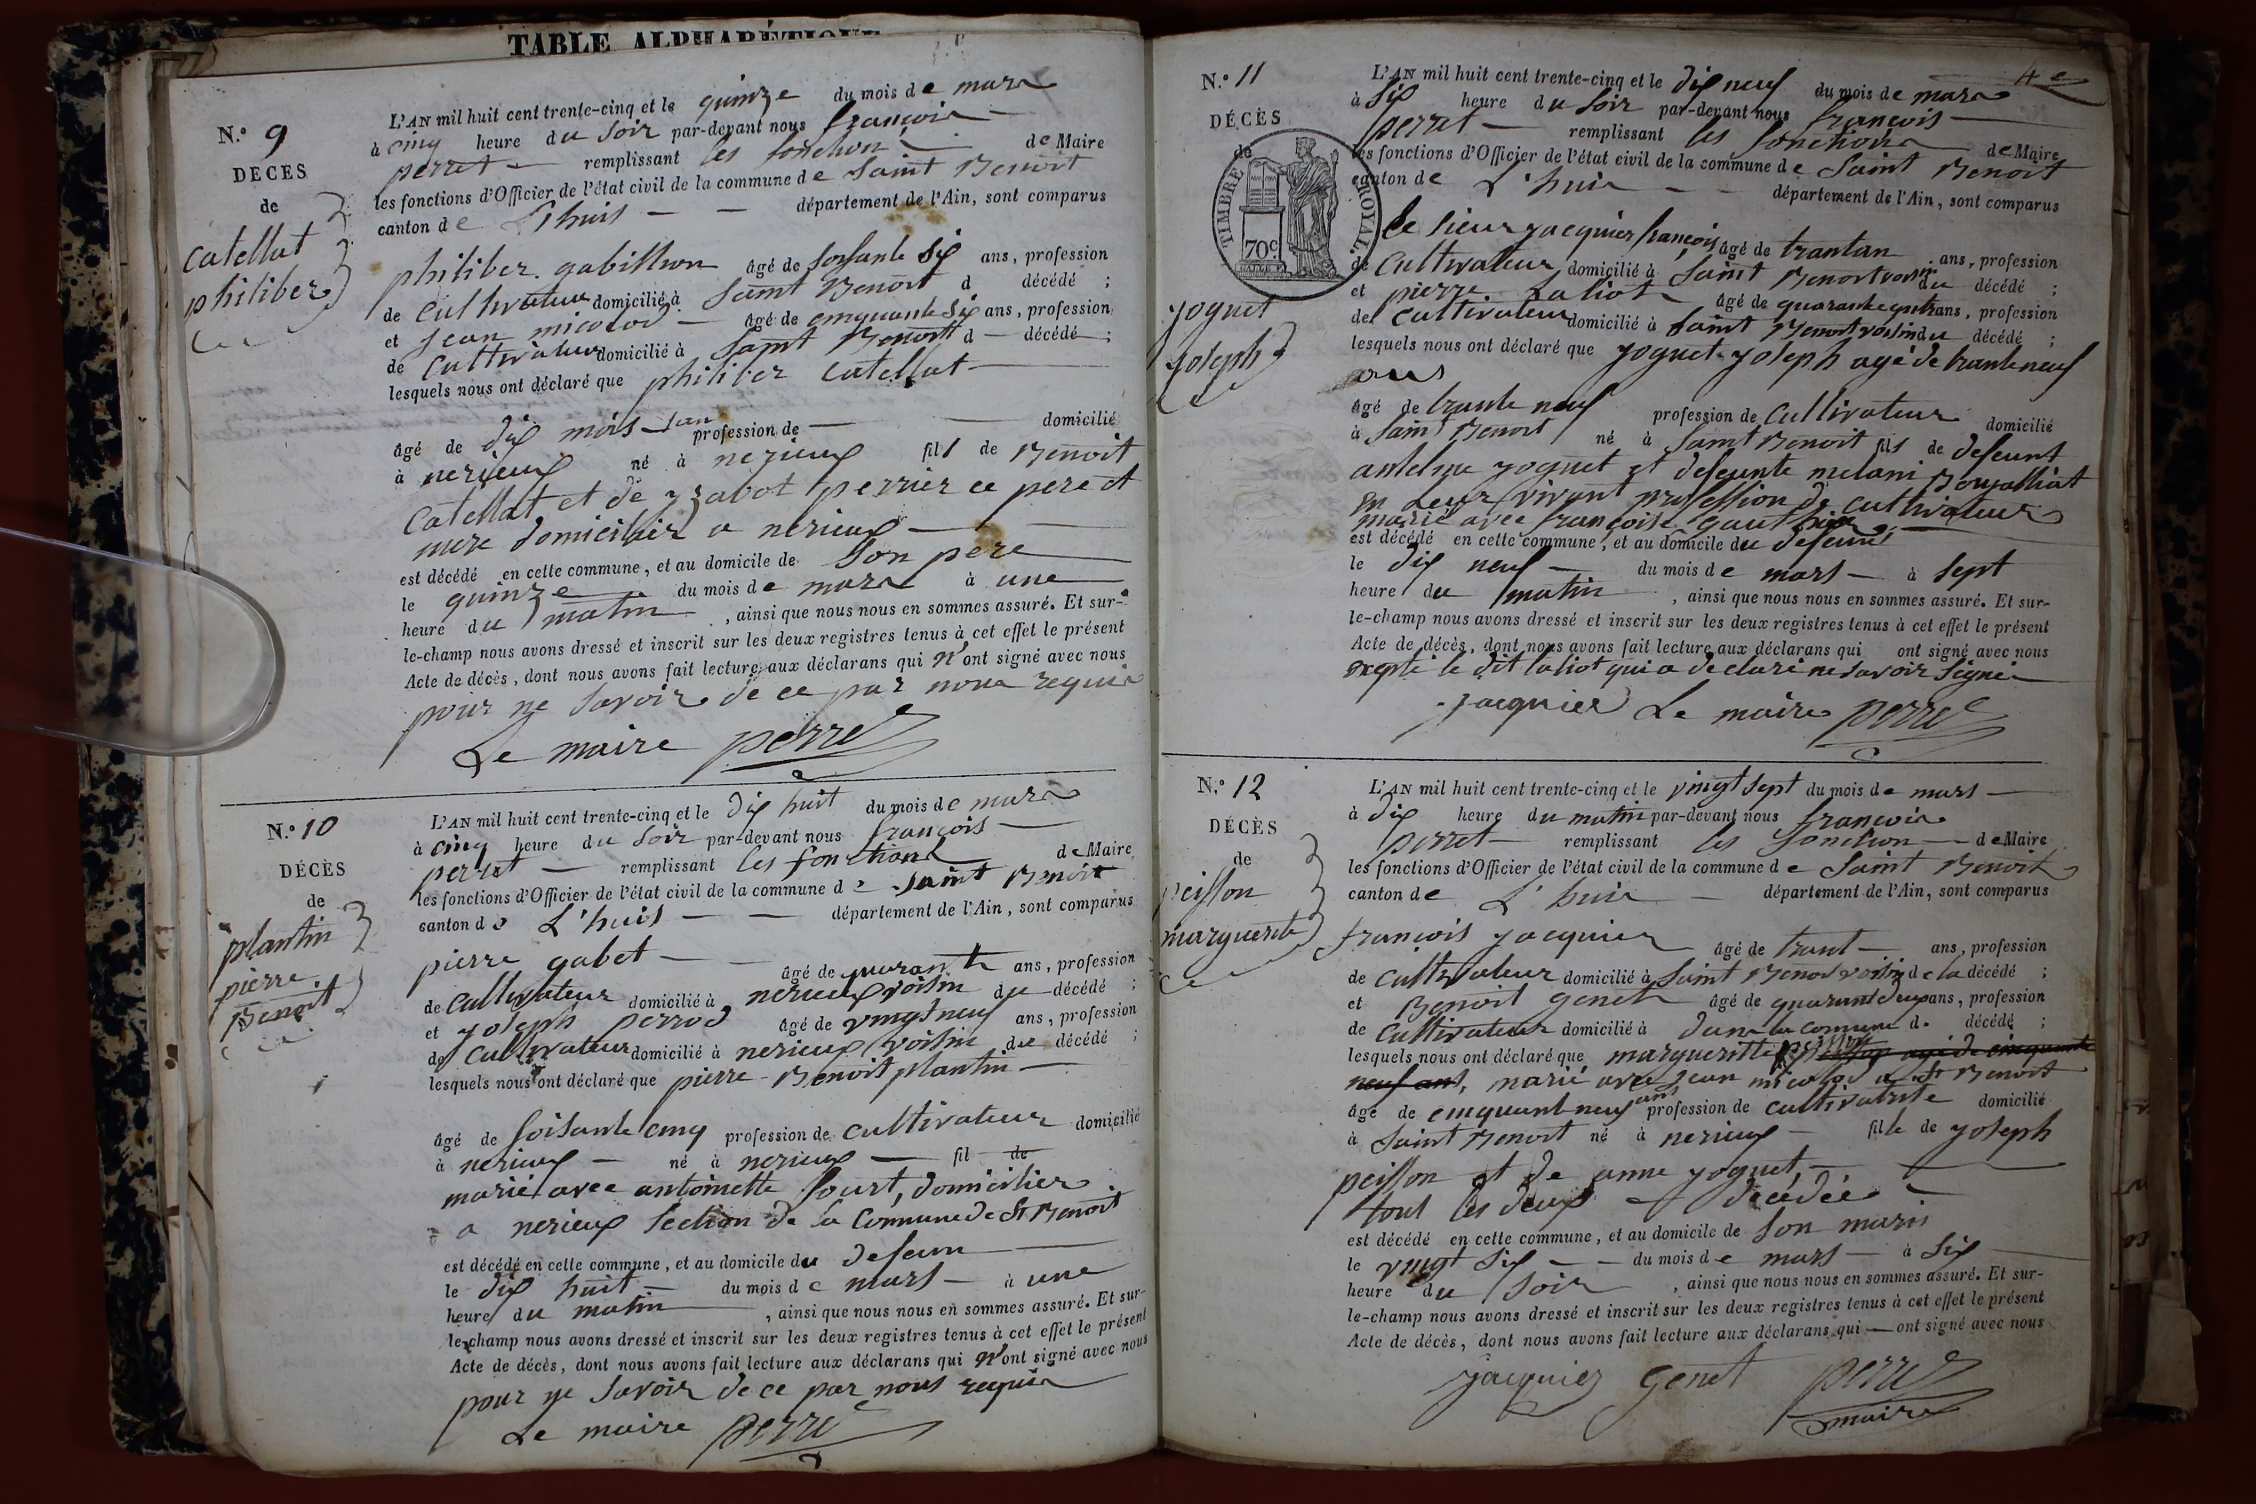 TABLE ALPHABÉTIQUE
N.° 9
DÉCÈS
de
Catellat
philiber
L'AN mil huit cent trente-cinq et le quinze du mois de mars
à cinq heure du soir par-devant nous françois
perret remplissant les fonction de Maire
les fonctions d'Officier de l'état civil de la commune de Saint Benoit
canton de L'huis département de l'Ain, sont comparus
philiber gabillion âgé de soisante six ans, profession
de cultivateur domicilié à Saint Benoit d décédé ;
et jean micolod âgé de cinquante six ans, profession
de Cultivateur domicilié à Saint Benoit d décédé ;
lesquels nous ont déclaré que philiber catellat
âgé de dix mois profession de domicilié
à nerieux né à nerieux fils de Benoit
Catellat et de yzabot perrier ce pere et
mere domicilier a nerieux
est décédé en cette commune, et au domicile de son pere
le quinze du mois de mars à une
heure du matin, ainsi que nous nous en sommes assuré. Et sur-
le-champ nous avons dressé et inscrit sur les deux registres tenus à cet effet le présent
Acte de décès, dont nous avons fait lecture aux déclarans qui n'ont signé avec nous
pour ne savoir de ce par nous requis
Le maire perret
N.° 10
DÉCÈS
de
plantin
pierre
Benoit
L'AN mil huit cent trente-cinq et le dix huit du mois de mars
à cinq heure du soir par-devant nous françois
perret remplissant les fonctions de Maire
les fonctions d'Officier de l'état civil de la commune de Saint Benoit
canton de L'huis département de l'Ain, sont comparus
pierre gabet âgé de quarante ans, profession
de Cultivateur domicilié à nerieux voisin du décédé ;
et yoseph perrod âgé de vingt neuf ans, profession
de Cultivateur domicilié à nerieux voisin du décédé ;
lesquels nous ont déclaré que pierre Benoit plantin
âgé de soisante cinq profession de cultivateur domicilié
à nerieux né à nerieux fil de
marié avec antoinette, domicilier
a nerieux section de la Commune de St Benoit
est décédé en cette commune, et au domicile du defeun
le dix huit du mois de mars à une
heure du matin, ainsi que nous nous en sommes assuré. Et sur-
le-champ nous avons dressé et inscrit sur les deux registres tenus à cet effet le présent
Acte de décès, dont nous avons fait lecture aux déclarans qui n'ont signé avec nous
pour ne savoir de ce par nous requis
Le maire perret
4e
N.° 11
DÉCÈS
de
TIMBRE ROYAL
70c
yoguet
yoseph
L'AN mil huit cent trente-cinq et le dix neuf du mois de mars
à six heure du soir par-devant nous françois
perret remplissant les fonctions de Maire
les fonctions d'Officier de l'état civil de la commune de Saint Benoit
canton de L'huis département de l'Ain, sont comparus
le sieur jacquier françois âgé de trantan ans, profession
de Cultivateur domicilié à Saint Benoit voisin du décédé ;
et pierre laliot âgé de quarante quatre ans, profession
de Cultivateur domicilié à Saint Benoit voisin du décédé ;
lesquels nous ont déclaré que yoguet yoseph agé de trante neuf
ans
âgé de trante neuf profession de Cultivateur domicilié
à Saint Benoit né à Saint Benoit fils de defeunt
antelme yoguet et defeunte melani
en leur vivant profession de cultivateur
marié avec françoise gauthier
est décédé en cette commune, et au domicile du defeunt
le dix neuf du mois de mars à sept
heure du matin, ainsi que nous nous en sommes assuré. Et sur-
le-champ nous avons dressé et inscrit sur les deux registres tenus à cet effet le présent
Acte de décès, dont nous avons fait lecture aux déclarans qui ont signé avec nous
excepté le dit laliot qui a declaré ne savoir signé
jacquier Le maire perret
N.° 12
DÉCÈS
de
peisson
marguerite
L'AN mil huit cent trente-cinq et le vingt sept du mois de mars
à dix heure du matin par-devant nous françois
perret remplissant les fonction de Maire
les fonctions d'Officier de l'état civil de la commune de Saint Benoit
canton de L'huis département de l'Ain, sont comparus
françois yacquier âgé de trant ans, profession
de cultivateur domicilié à Saint Benoit voisin de la décédé ;
et Benoit genet âgé de quarant deux ans, profession
de Cultivateur domicilié à dans la comune d. décédé ;
lesquels nous ont déclaré que margueritte peisson agé de cinquante
neuf ans, marié avec jean micolod a St Benoit
âgé de cinquant neuf ans profession de cultivatrite domicilié
à Saint Benoit né à nerieux fille de yoseph
peisson et de anne yoguet,
tout les deux decédée
est décédé en cette commune, et au domicile de son maris
le vingt six du mois de mars à six
heure du soir, ainsi que nous nous en sommes assuré. Et sur-
le-champ nous avons dressé et inscrit sur les deux registres tenus à cet effet le présent
Acte de décès, dont nous avons fait lecture aux déclarans qui ont signé avec nous
yacquier genet perret
maire